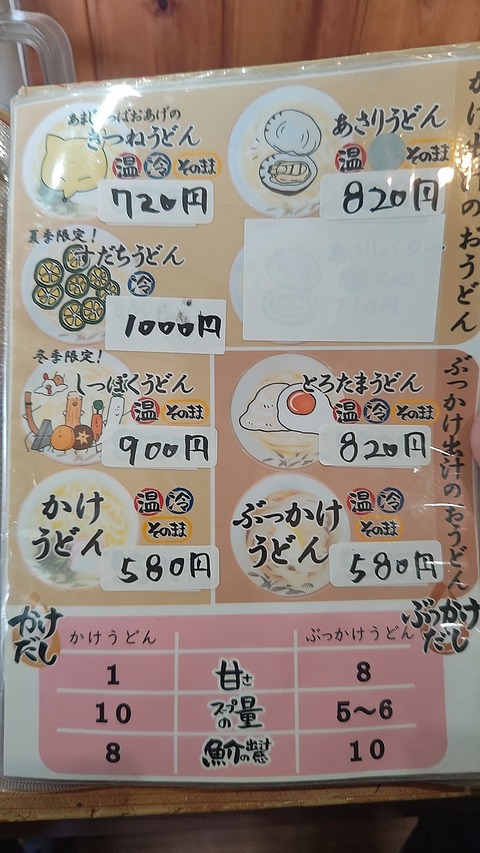 あまじょっぱおあげの
きつねうどん
温 冷 そのまま
720円
あさりうどん
温 そのまま
820円
夏季限定!
すだちうどん
冷
1000円
冬季限定!
しっぽくうどん
温 そのまま
900円
かけ
うどん
温 冷
そのまま
580円
かけ出汁のおうどん
とろたまうどん
温 冷 そのまま
820円
ぶっかけ
うどん
温 冷
そのまま
580円
ぶっかけ出汁のおうどん
かけ
だし
ぶっかけ
だし
かけうどん ぶっかけうどん
1 甘さ 8
10 スープの量 5〜6
8 魚介の出汁感 10